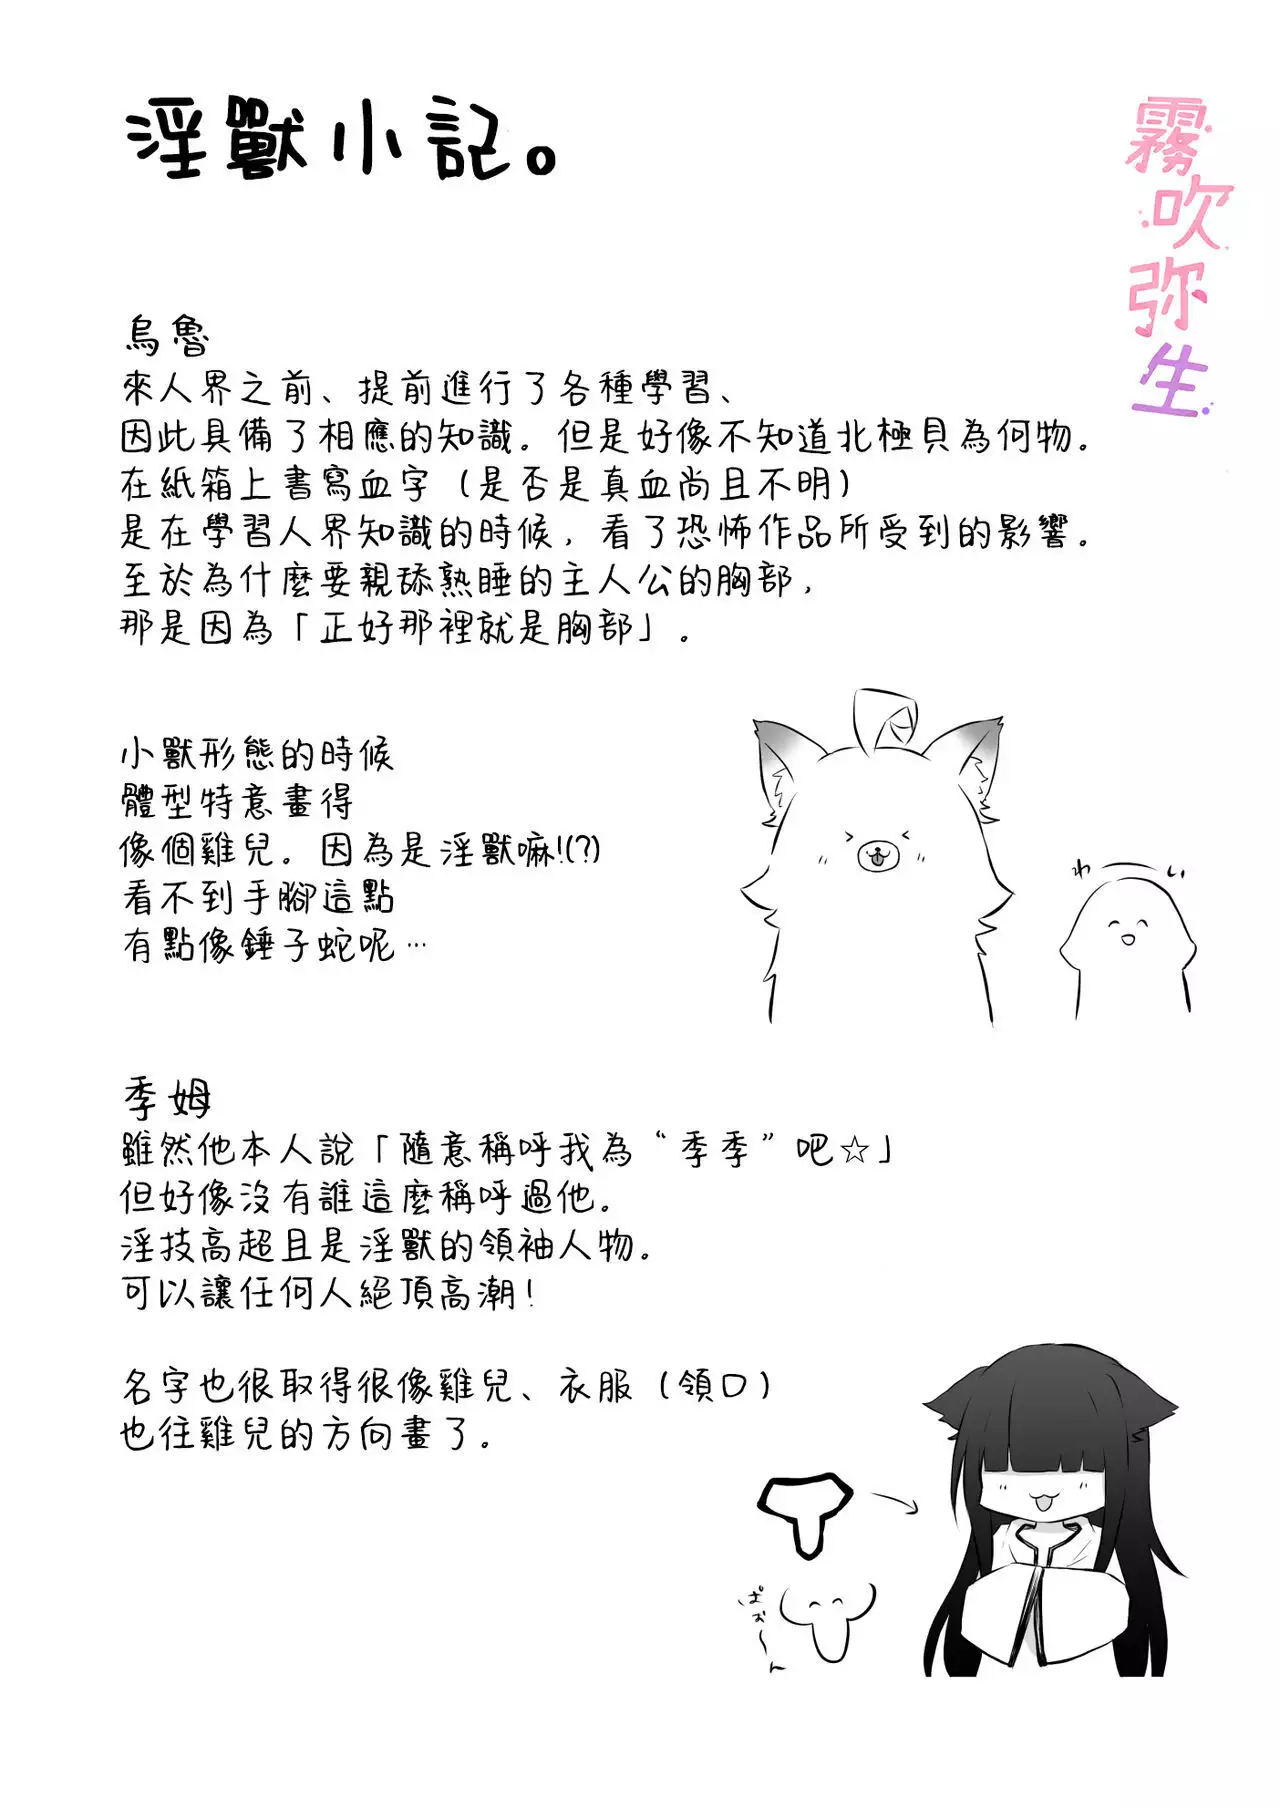 淫獸小記。
霧吹弥生
烏魯
來人界之前、提前進行了各種學習、
因此具備了相應的知識。但是好像不知道北極貝為何物。
在紙箱上書寫血字（是否是真血尚且不明）
是在學習人界知識的時候，看了恐怖作品所受到的影響。
至於為什麼要親舔熟睡的主人公的胸部，
那是因為「正好那裡就是胸部」。
小獸形態的時候
體型特意畫得
像個雞兒。因為是淫獸嘛!(?)
看不到手腳這點
有點像錘子蛇呢…
わーい
季姆
雖然他本人說「隨意稱呼我為“季季”吧☆」
但好像沒有誰這麼稱呼過他。
淫技高超且是淫獸的領袖人物。
可以讓任何人絕頂高潮!
名字也很取得很像雞兒、衣服（領口）
也往雞兒的方向畫了。
ぱぉ〜ん